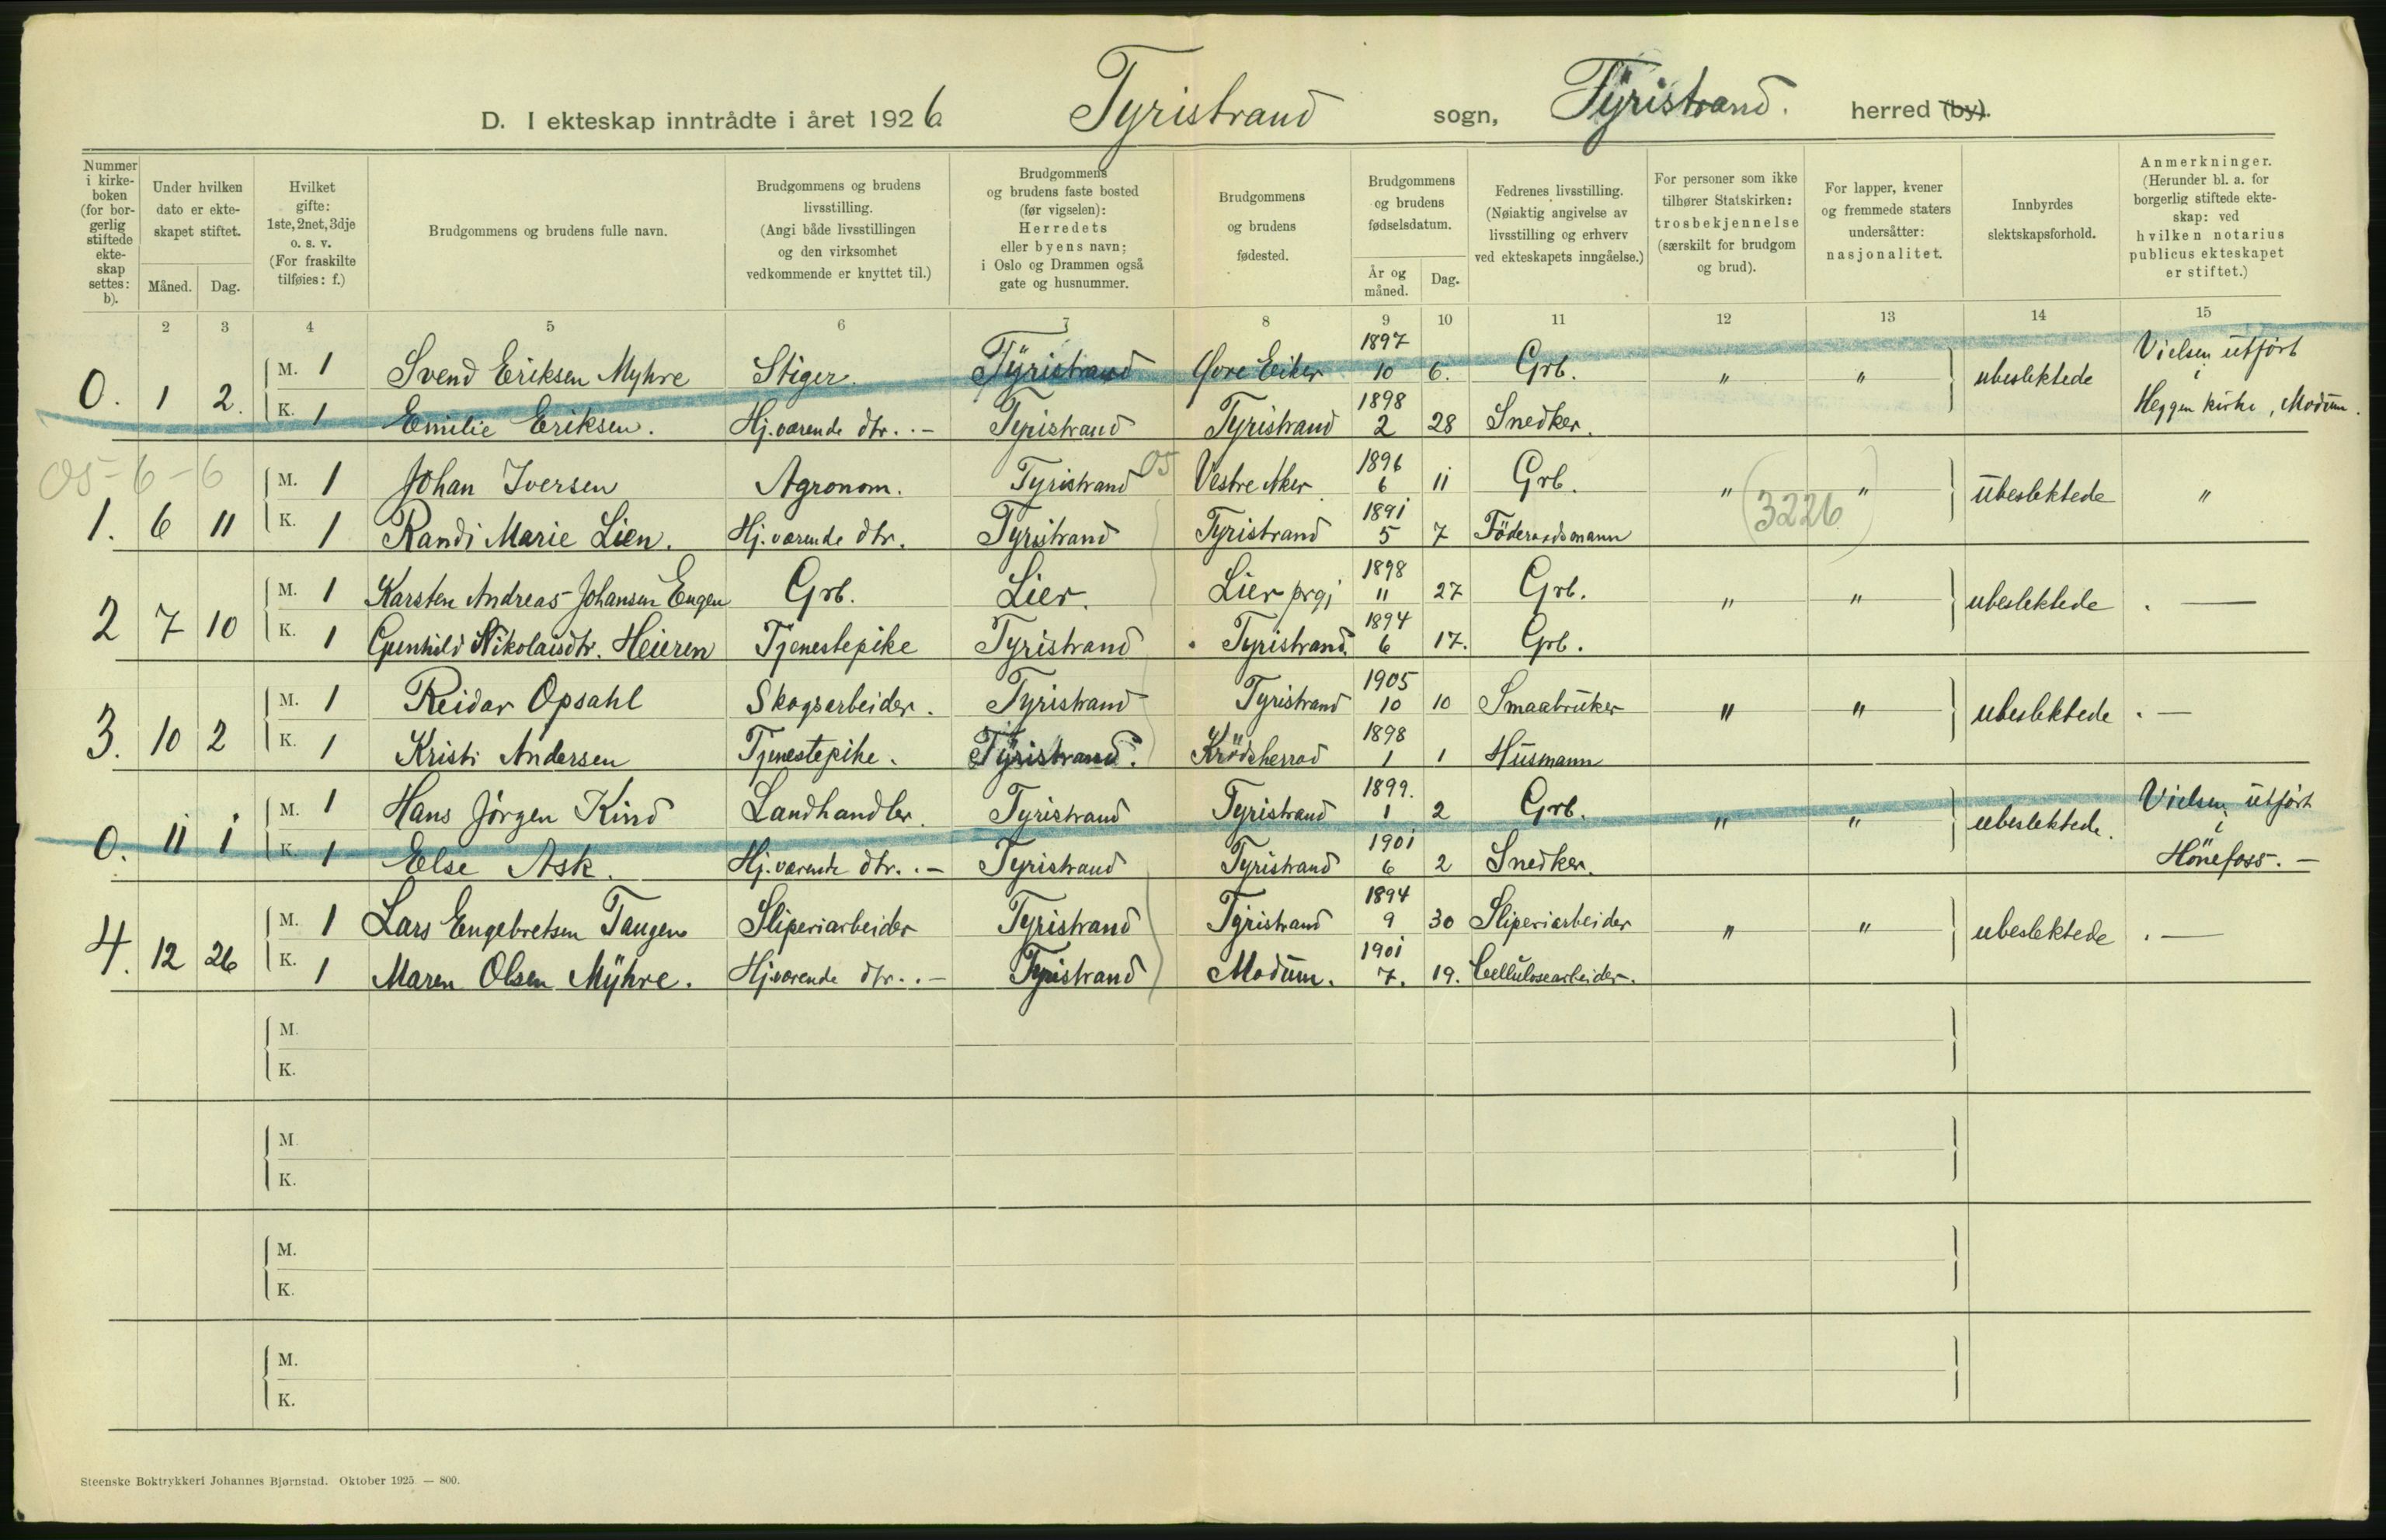 D. I ekteskap inntrådte i året 1926 Tyristrand sogn, Tyristrand. herred (by).
Nummer i kirke- boken (for bor- gerlig stiftede ekte- skap settes: b).
Under hvilken dato er ekte- skapet stiftet.
Måned. Dag.
Hvilket gifte: 1ste, 2net, 3dje o. s. v. (For fraskilte tilføies: f.)
Brudgommens og brudens fulle navn.
Brudgommens og brudens livsstilling. (Angi både livsstillingen og den virksomhet vedkommende er knyttet til.)
Brudgommens og brudens faste bosted (før vigselen): Herredets eller byens navn; i Oslo og Drammen også gate og husnummer.
Brudgommens og brudens fødested.
Brudgommens og brudens fødselsdatum.
År og måned. Dag.
Fedrenes livsstilling. (Nøiaktig angivelse av livsstilling og erhverv ved ekteskapets inngåelse.)
For personer som ikke tilhører Statskirken: trosbekjennelse (særskilt for brudgom og brud).
For lapper, kvener og fremmede staters undersåtter: nasjonalitet.
Innbyrdes slektskapsforhold.
Anmerkninger. (Herunder bl. a. for borgerlig stiftede ekte- skap: ved hvilken notarius publicus ekteskapet er stiftet.)
2 3 4 5 6 7 8 9 10 11 12 13 14 15
0. 1 2. M. 1 Svend Eriksen Myhre Stiger. Tyristrand Øvre Eiker 1897 10 6. Grb. " " ubeslektede Vielsen utført i Heggen kirke, Modum.
K. 1 Emilie Eriksen. Hj.værende dtr. .- Tyristrand Tyristrand 1898 2 28 Snedker.
05-6-6
1. 6 11 M. 1 Johan Iversen Agronom. Tyristrand 05 Vestre Aker 1896 6 11 Grb. " " ubeslektede "
K. 1 Randi Marie Lien. Hj.værende dtr. Tyristrand Tyristrand 1891 5 7 Föderaadsmann (3226)
2 7 10 M. 1 Karsten Andreas Johansen Engen Grb. Lier. Lier prgj 1898 11 27 Grb. " " ubeslektede . —
K. 1 Gunhild Nikolaisdtr. Heieren Tjenestepike Tyristrand Tyristrand. 1894 6 17. Grb.
3. 10 2 M. 1 Reidar Opsahl Skogsarbeider. Tyristrand Tyristrand 1905 10 10 Smaabruker " " ubeslektede . —
K. 1 Kristi Andersen Tjenestepike. Tyristrand. Krödsherrad 1898 1 1 Husmann
0. 11 1 M. 1 Hans Jörgen Kind Landhandler. Tyristrand Tyristrand 1899. 1 2 Grb. " " ubeslektede. Vielsen utført i Hönefoss. —
K. 1 Else Ask. Hj.værende dtr. .- Tyristrand Tyristrand 1901 6 2 Snedker.
4. 12 26 M. 1 Lars Engebretsen Tangen Sliperiarbeider Tyristrand Tyristrand 1894 9 30 Sliperiarbeider " " ubeslektede . —
K. 1 Maren Olsen Myhre. Hj.værende dtr. .- Tyristrand Modum. 1901 7. 19. Cellulosearbeider.
M.
K.
M.
K.
M.
K.
M.
K.
Steenske Boktrykkeri Johannes Bjørnstad. Oktober 1925. — 800.